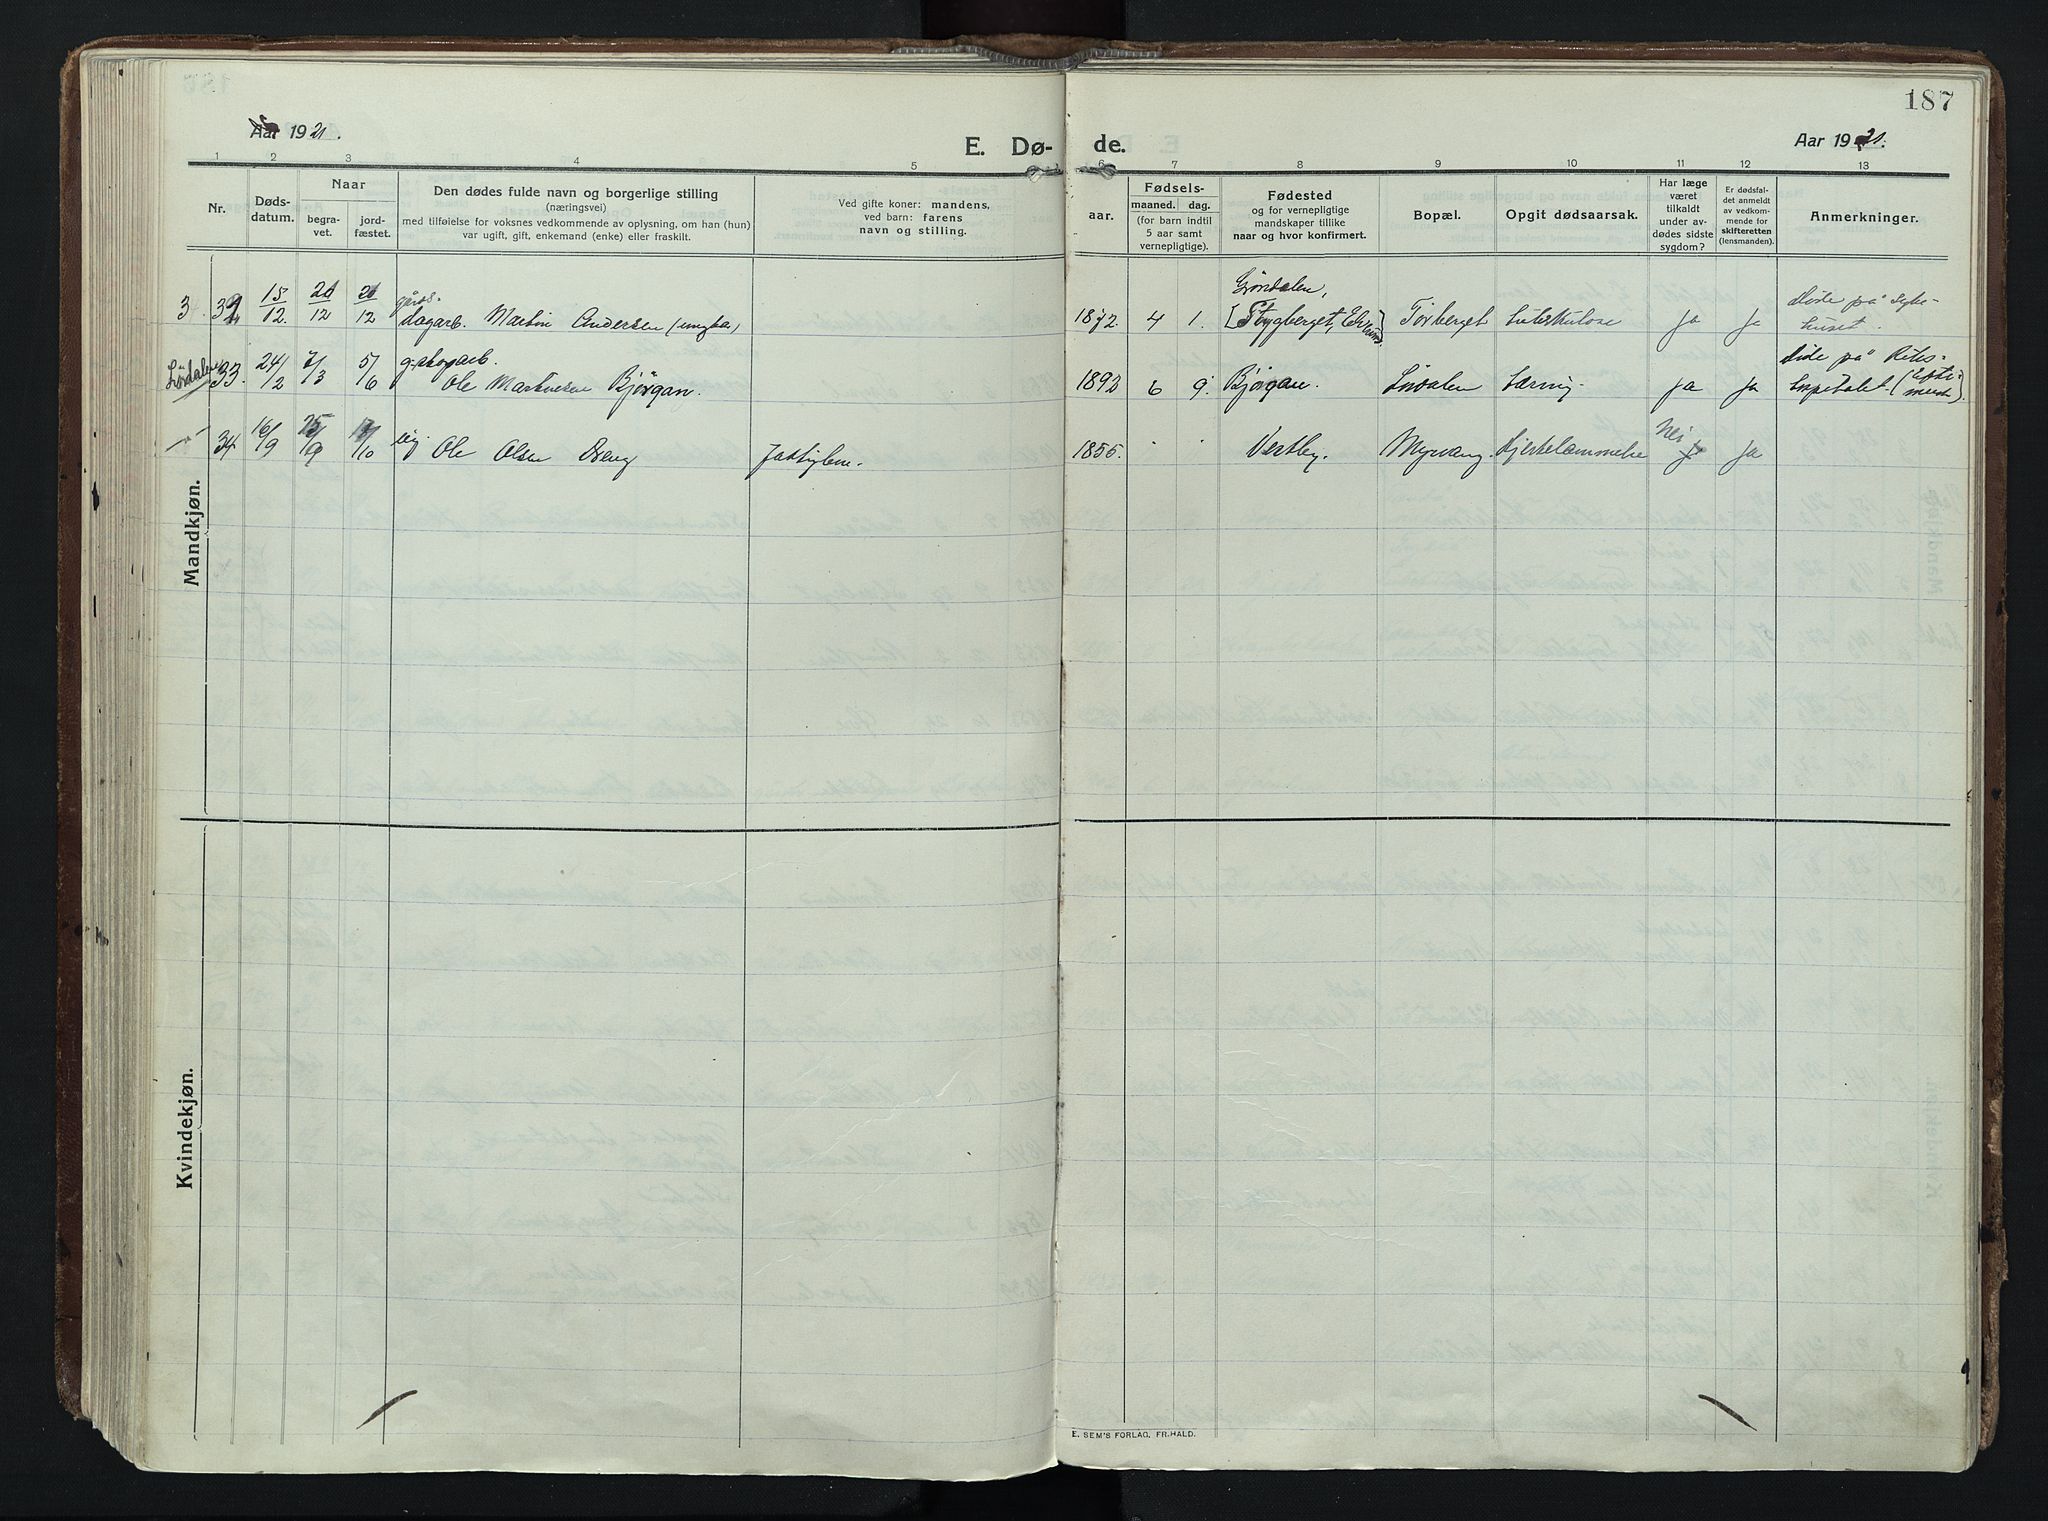 187
Aar 1921.
E. Dø- de.
Aar 1921.
1 2 3 4 5 6 7 8 9 10 11 12 13
Nr.
Døds-
datum.
Naar
begra-
vet.
jord-
fæstet.
Den dødes fulde navn og borgerlige stilling
(næringsvei)
med tilføielse for voksnes vedkommende av oplysning, om han (hun)
var ugift, gift, enkemand (enke) eller fraskilt.
Ved gifte koner: mandens,
ved barn: farens
navn og stilling.
aar.
Fødsels-
maaned. dag.
(for barn indtil
5 aar samt
vernepligtige).
Fødested
og for vernepligtige
mandskaper tillike
naar og hvor konfirmert.
Bopæl.
Opgit dødsaarsak.
Har læge
været
tilkaldt
under av-
dødes sidste
sygdom?
Er dødsfal-
det anmeldt
av vedkom-
mende for
skifteretten
(lensmanden).
Anmerkninger.
Mandkjøn.
3. 32 15/12. 20/12 21/12 gårds-
dagarb. Martin Andersen (ungkar) 1872. 4 1. Grøndalen,
[Flygberget, Elverum]. Torberget tuberkulose Ja Ja døde på syke-
huset.
Lørdalen 33. 24/2 7/3 5/6 g. skogarb.
Ole Martinsen Bjørgan. 1892 6 9. Bjørgan. Lørdalen tæring. Ja Ja døde på Rikshospitalet.
34 16/9 25/9 /10 Ole Olsen 1855. " " Vestby. Myrvang. Hjertelammelse Nei Ja
Kvindekjøn.
E. SEM'S FORLAG, FR.HALD.